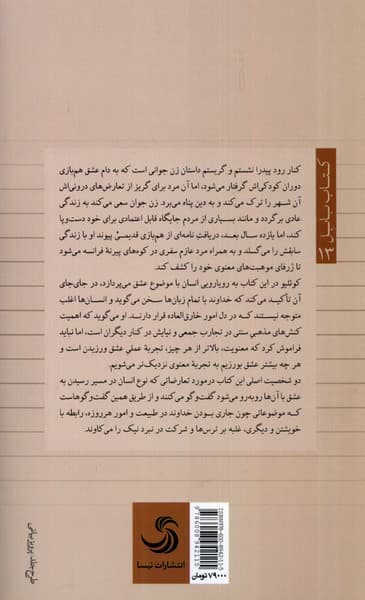 کتاب نیابیل
کنار رود پیدرا نشستم و گریستم داستان زن جوانی است که به دام عشق هم‌بازی
دوران کودکی‌اش گرفتار می‌شود، اما آن مرد برای گریز از تعارض‌های درونی‌اش
آن شهر را ترک می‌کند و به دین پناه می‌برد. زن جوان سعی می‌کند به زندگی
عادی برگردد و مانند بسیاری از مردم جایگاه قابل اعتمادی برای خود دست‌وپا
کند، اما یازده سال بعد، دریافتِ نامه‌ای از هم‌بازی قدیمی پیوند او با زندگی
سابقش را می‌گسلد و به همراه مرد عازم سفری در کوه‌های پیرنهٔ فرانسه می‌شود
تا ژرفای موهبت‌های معنوی خود را کشف کند.
کوئلیو در این کتاب به رویارویی انسان با موضوع عشق می‌پردازد، در جای‌جای
آن تأکید می‌کند که خداوند با تمام زبان‌ها سخن می‌گوید و انسان‌ها اغلب
متوجه نیستند که در دل امور خارق‌العاده قرار دارند. او می‌گوید که اهمیت
کنش‌های مذهبی سنتی در تجارب جمعی و نیایش در کنار دیگران است، اما نباید
فراموش کرد که معنویت، بالاتر از هر چیز، تجربهٔ عملیِ عشق ورزیدن است و
هر چه بیشتر عشق بورزیم به تجربهٔ معنوی نزدیک‌تر می‌شویم.
دو شخصیت اصلی این کتاب درمورد تعارضاتی که نوع انسان در مسیر رسیدن به
عشق با آن‌ها روبه‌رو می‌شود گفت‌وگو می‌کنند و از طریق همین گفت‌وگوهاست
که موضوعاتی چون جاری بودن خداوند در طبیعت و امور هرروزه، رابطه با
خویشتن و دیگری، غلبه بر ترس‌ها و شرکت در نبرد نیک را می‌کاوند.
انتشارات تیسا
9786008942115
۷۹۰۰۰ تومان
طرح جلد: پرویز بیانی